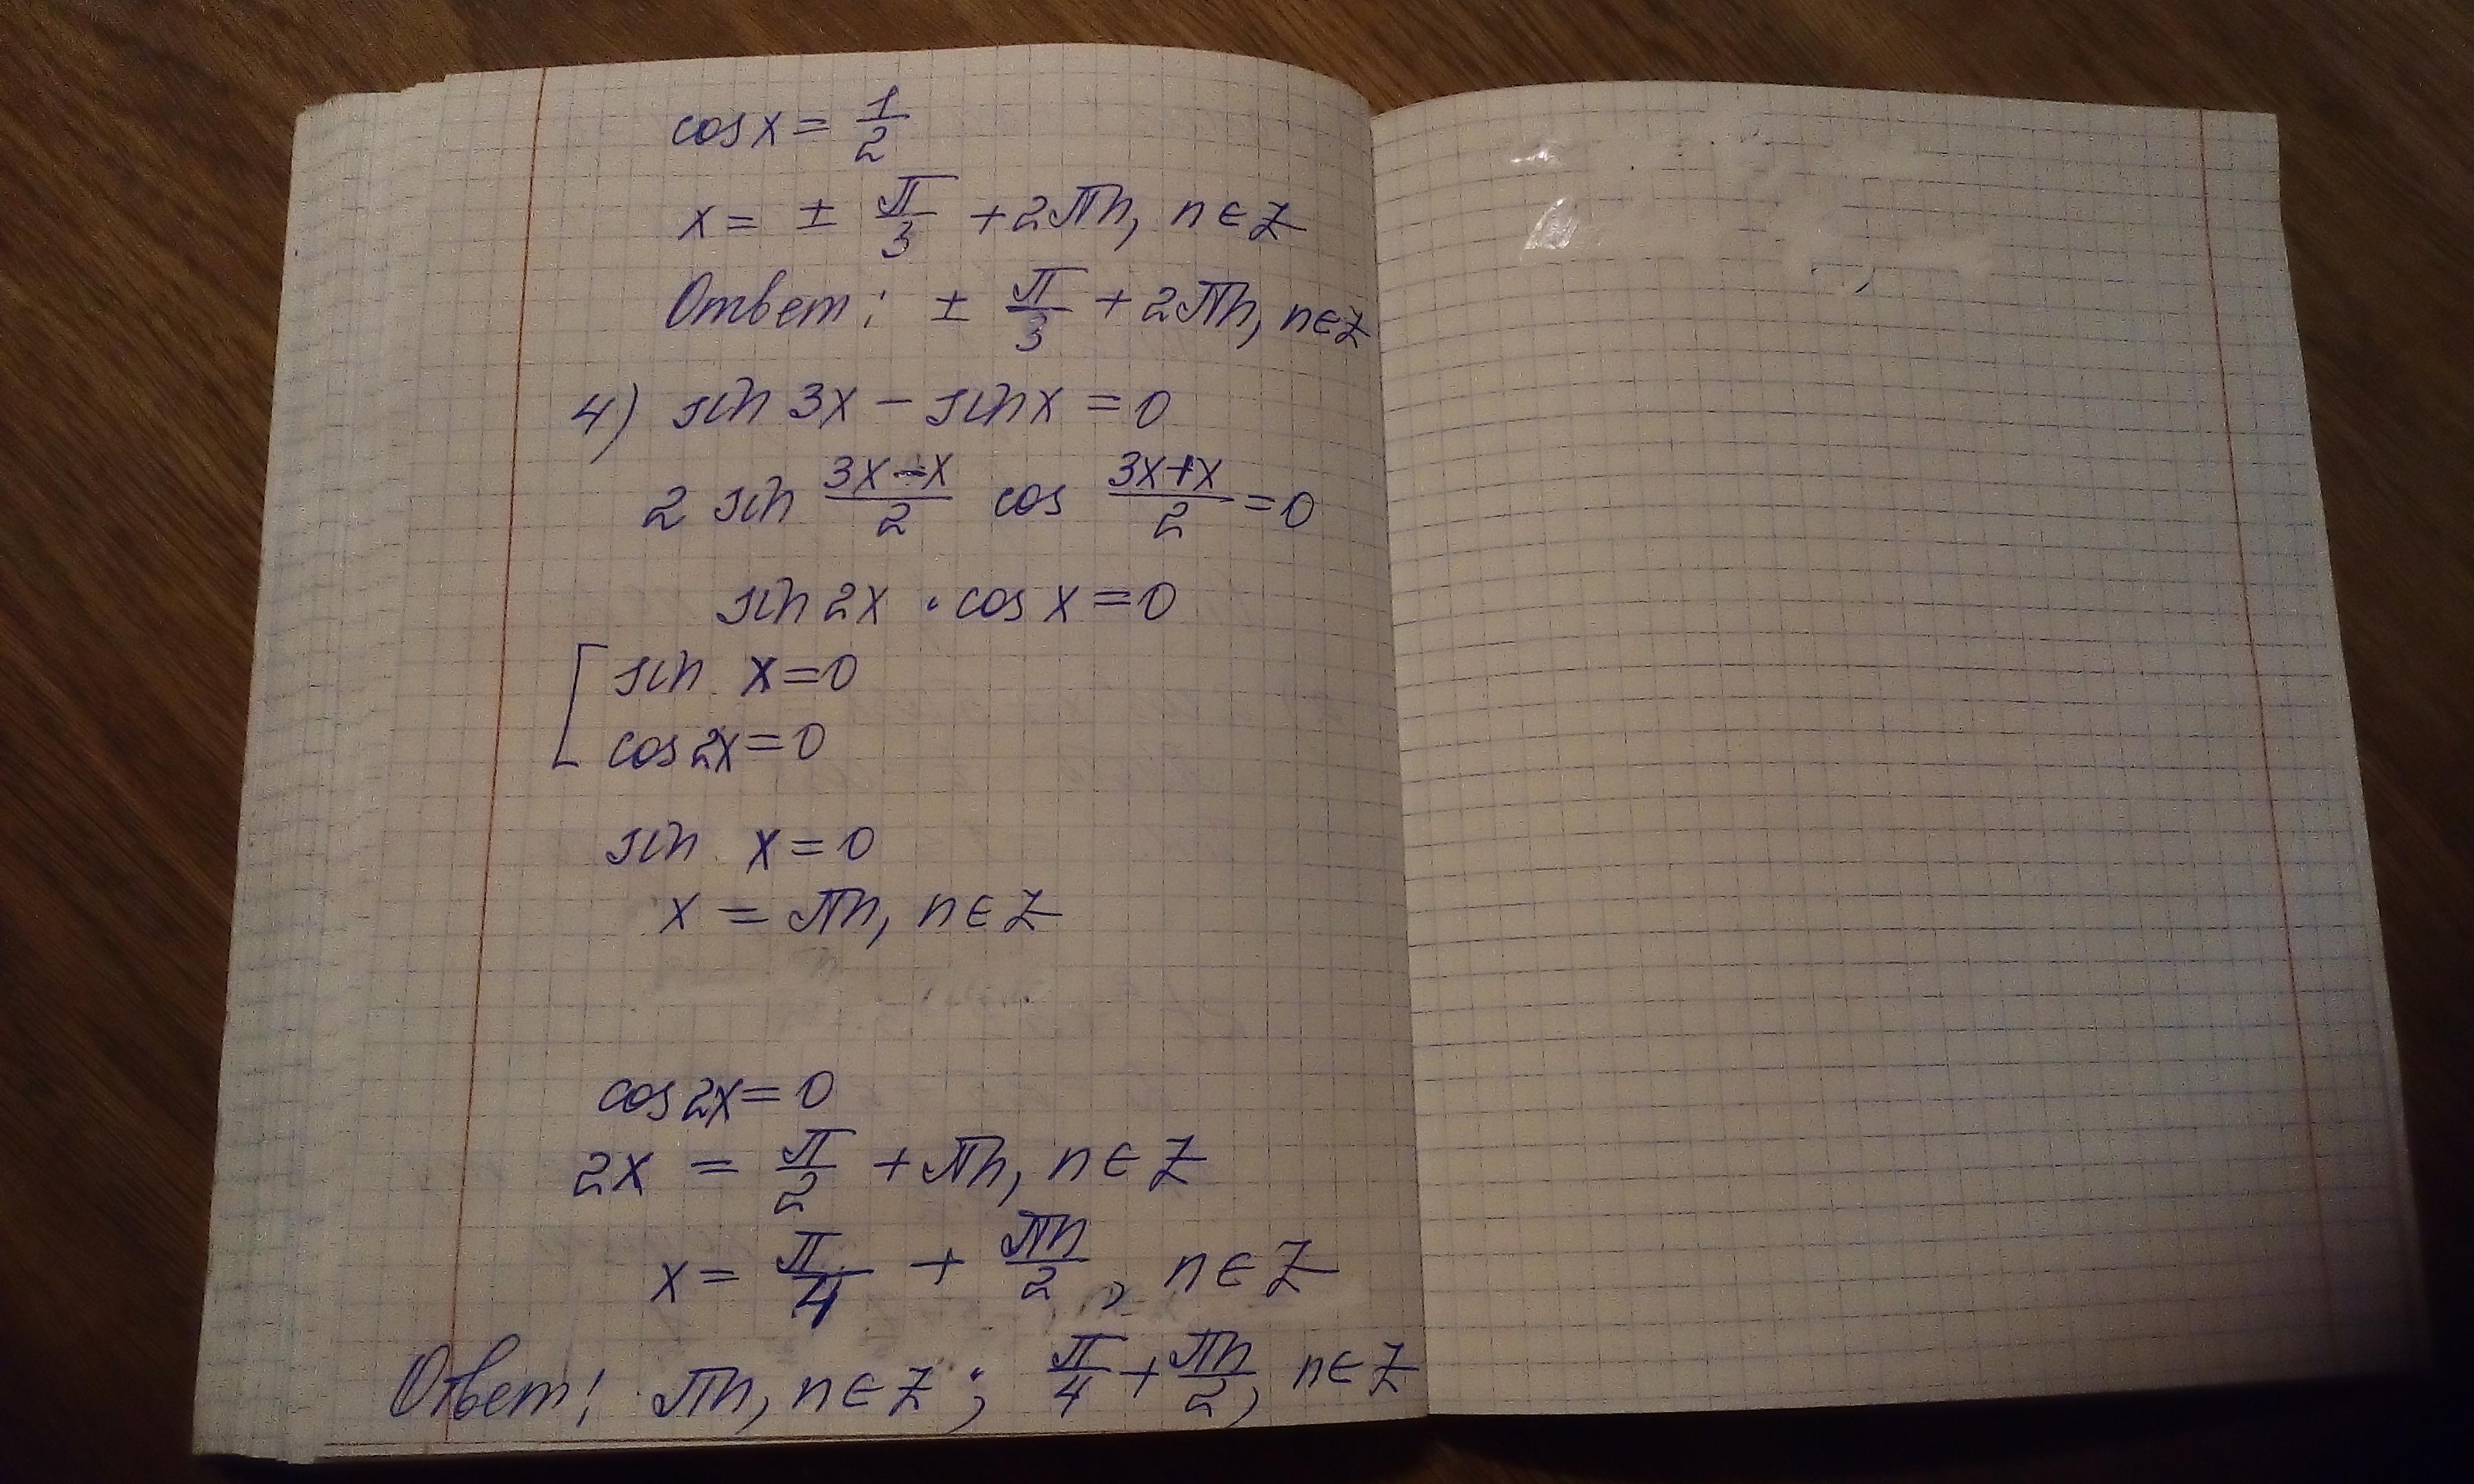 cos x = 1/2
x = ± π/3 + 2πn, n ∈ Z
Ответ: ± π/3 + 2πn, n ∈ Z
4) sin 3x − sin x = 0
2 sin (3x−x)/2 cos (3x+x)/2 = 0
sin 2x · cos x = 0
[ sin x = 0
cos 2x = 0
sin x = 0
x = πn, n ∈ Z
cos 2x = 0
2x = π/2 + πn, n ∈ Z
x = π/4 + πn/2, n ∈ Z
Ответ: πn, n ∈ Z; π/4 + πn/2, n ∈ Z